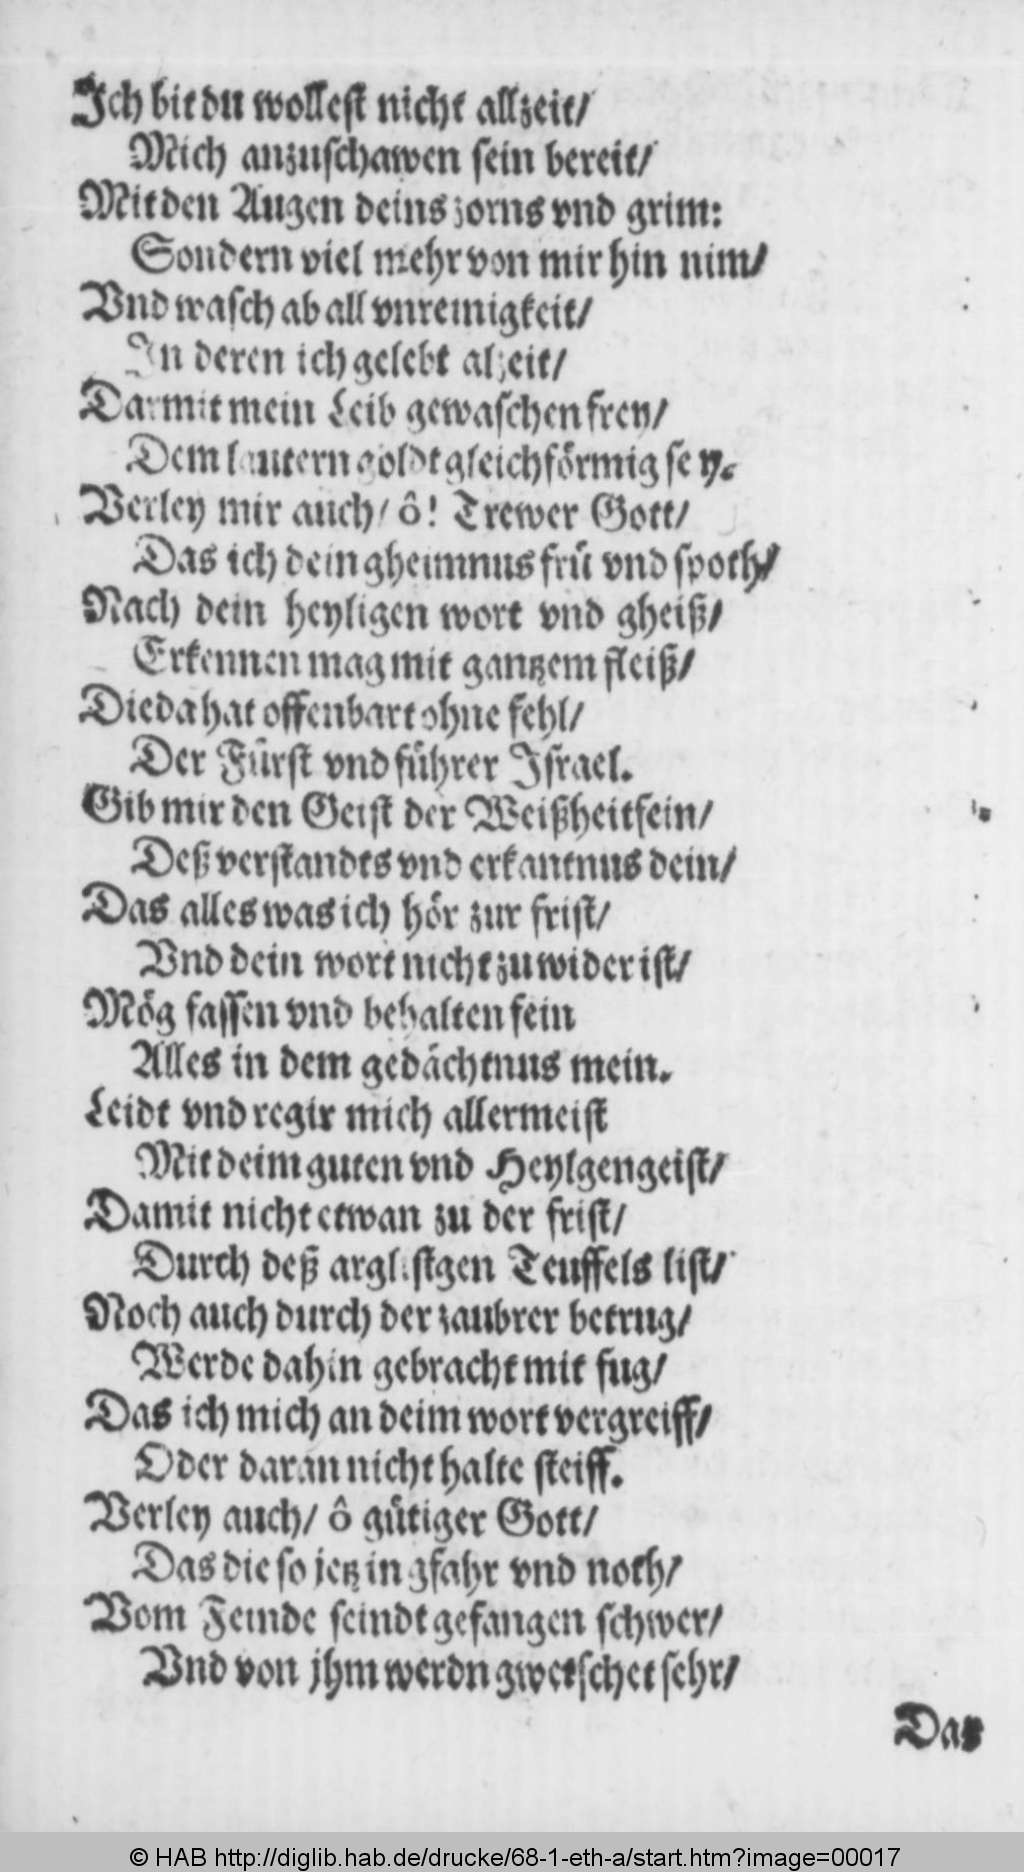 Ich bit du wollest nicht allzeit/
Mich anzuschawen sein bereit/
Mit den Augen deins zorns vnd grim:
Sondern viel mehr von mir hin nim/
Vnd wasch ab all vnreinigkeit/
In deren ich gelebt alzeit/
Darmit mein Leib gewaschen frey/
Dem lautern goldt gleichförmig sey.
Verley mir auch/ ô! Trewer Gott/
Das ich dein gheimnus frü vnd spoth/
Nach dein heyligen wort vnd gheiß/
Erkennen mag mit gantzem fleiß/
Die da hat offenbart ohne fehl/
Der Fürst vnd führer Israel.
Gib mir den Geist der Weißheit fein/
Deß verstandts vnd erkantnus dein/
Das alles was ich hör zur frist/
Vnd dein wort nicht zu wider ist/
Mög fassen vnd behalten fein
Alles in dem gedächtnus mein.
Leidt vnd regir mich allermeist
Mit deim guten vnd Heylgen geist/
Damit nicht etwan zu der frist/
Durch deß arglistgen Teuffels list/
Noch auch durch der zaubrer betrug/
Werde dahin gebracht mit fug/
Das ich mich an deim wort vergreiff/
Oder daran nicht halte steiff.
Verley auch/ ô gütiger Gott/
Das die so jetz in gfahr vnd noth/
Vom Feinde seindt gefangen schwer/
Vnd von jhm werdn gwetschet sehr/
Das
© HAB http://diglib.hab.de/drucke/68-1-eth-a/start.htm?image=00017